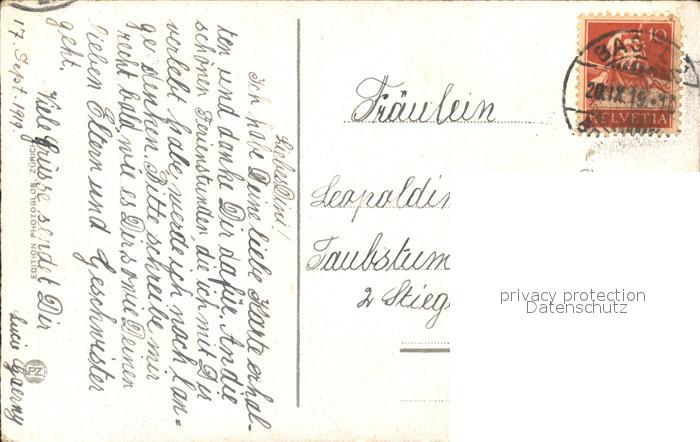 Liebe Dini!
Ich habe Deine liebe Karte erhal-
ten und danke Dir dafür. An die
schönen Ferienstunden, die ich mit Dir
verlebt habe, werde ich noch lan-
ge denken. Bitte schreibe mir
recht bald, wie es Dir sowie Deinen
lieben Eltern und Geschwister
geht.
Viele Grüsse sendet Dir
17. Sept. 1919.
EDITION PHOTOGLOB, ZÜRICH
Fräulein
Leopoldin
Taubstum
2 Stieg
10
HELVETIA
privacy protection
Datenschutz